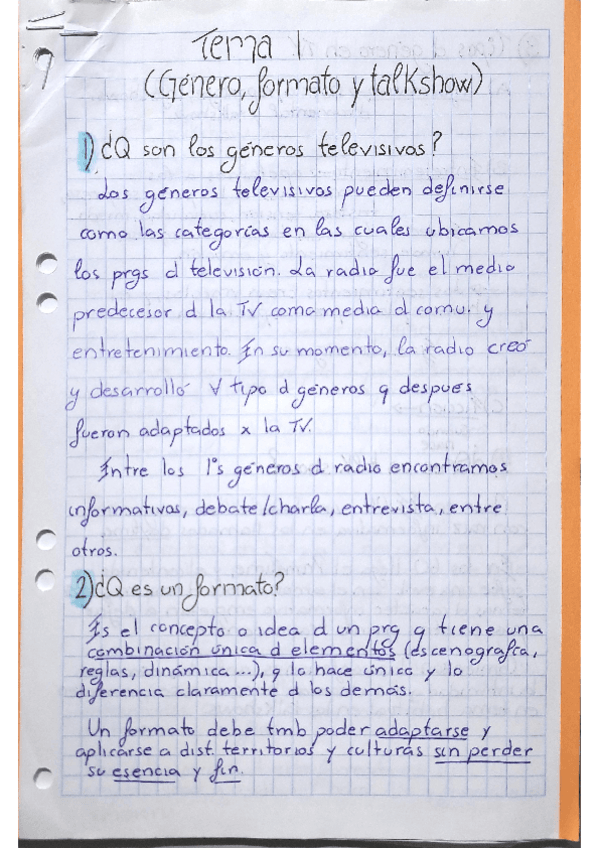 Tema 1
(Género, formato y talkshow)
1) ¿Q son los géneros televisivos?
Los géneros televisivos pueden definirse
como las categorías en las cuales ubicamos
los prgs d televisión. La radio fue el medio
predecesor d la TV como media d comu. y
entretenimiento. En su momento, la radio creó
y desarrolló ∀ tipo d géneros q despues
fueron adaptados x la TV.
Entre los 1ºs géneros d radio encontramos
informativas, debate/charla, entrevista, entre
otros.
2) ¿Q es un formato?
Es el concepto o idea d un prg q tiene una
combinación única d elementos (escenografía,
reglas, dinámica...), q lo hace único y lo
diferencia claramente d los demás.
Un formato debe tmb poder adaptarse y
aplicarse a dist. territorios y culturas sin perder
su esencia y fin.